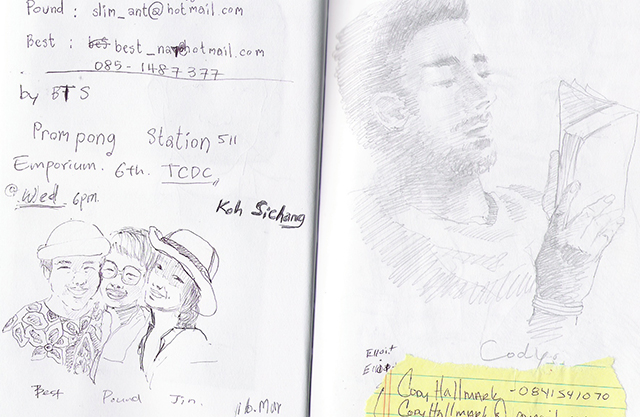 Pound : slim_ant@hotmail.com
Best : best_na@hotmail.com
085-1487377
by BTS
Prompong Station
Emporium. 6th. TCDC
@ Wed. 6pm.
Koh Sichang
Best Pound Jin.
16. Mar
Cody.
Elloit
Cory Hallmark - 0841541070